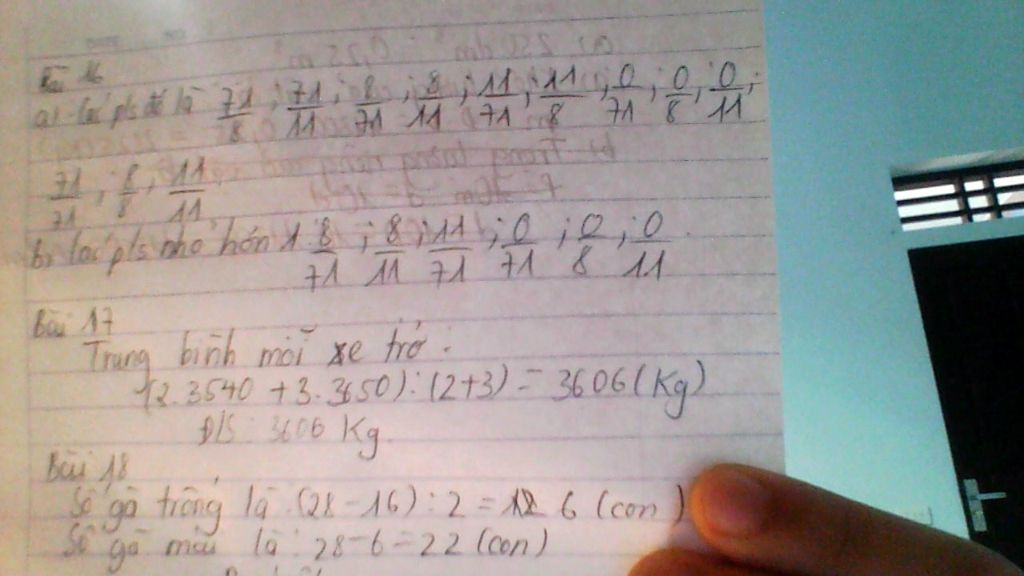 Bài 16
a) các p/s đó là 71/8 ; 71/11 ; 8/71 ; 8/11 ; 11/71 ; 11/8 ; 0/71 ; 0/8 ; 0/11 ;
71/71 ; 8/8 ; 11/11
b) các p/s nhỏ hơn 1 8/71 ; 8/11 ; 11/71 ; 0/71 ; 0/8 ; 0/11 .
Bài 17
Trung bình mỗi xe trở :
(2.3540 + 3.3650) : (2+3) = 3606 (Kg)
Đ/S : 3606 Kg.
Bài 18
Số gà trống là (28-16) : 2 = 6 (con)
Số gà mái là : 28-6=22 (con)